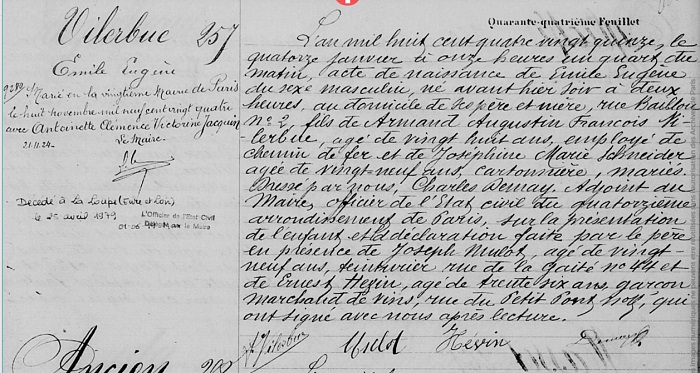 Quarante-quatrième Feuillet
Vilerbue 257
Emile Eugène
Marié en la vingtième Mairie de Paris
le huit novembre mil neuf cent vingt quatre
avec Antoinette Clémence Victorine Jacquin
21.11.24. Le Maire.
Décédé à La Loupe (Eure et Loir)
le 25 avril 1979
L'Officier de l'Etat Civil
L'an mil huit cent quatre vingt quinze, le
quatorze janvier à onze heures un quart du
matin, acte de naissance de Emile Eugène
du sexe masculin, né avant hier soir à deux
heures, au domicile de ses père et mère, rue Baulant
n° 2, fils de Armand Augustin François Vi-
lerbue, agé de vingt huit ans, employé de
chemin de fer et de Joséphine Marie Schneider
agée de vingt-neuf ans, cartonnière, mariés.
Dressé par nous, Charles Demay, Adjoint au
Maire, officier de l'Etat civil du quatorzième
arrondissement de Paris, sur la présentation
de l'enfant et déclaration faite par le père
en présence de Joseph Mulot, agé de vingt-
neuf ans, teinturier rue de la gaité n° 44 et
de Ernest Hévin, agé de trente six ans, garçon
marchand de vins, rue du Petit Pont, qui
ont signé avec nous après lecture.
Vilerbue Mulot Hévin
Ancien